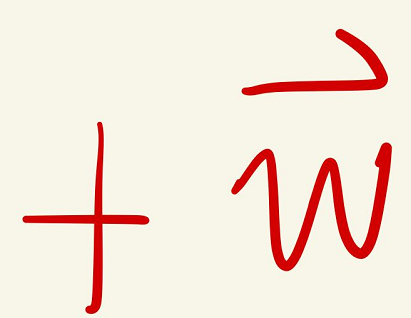 + \vec{w}